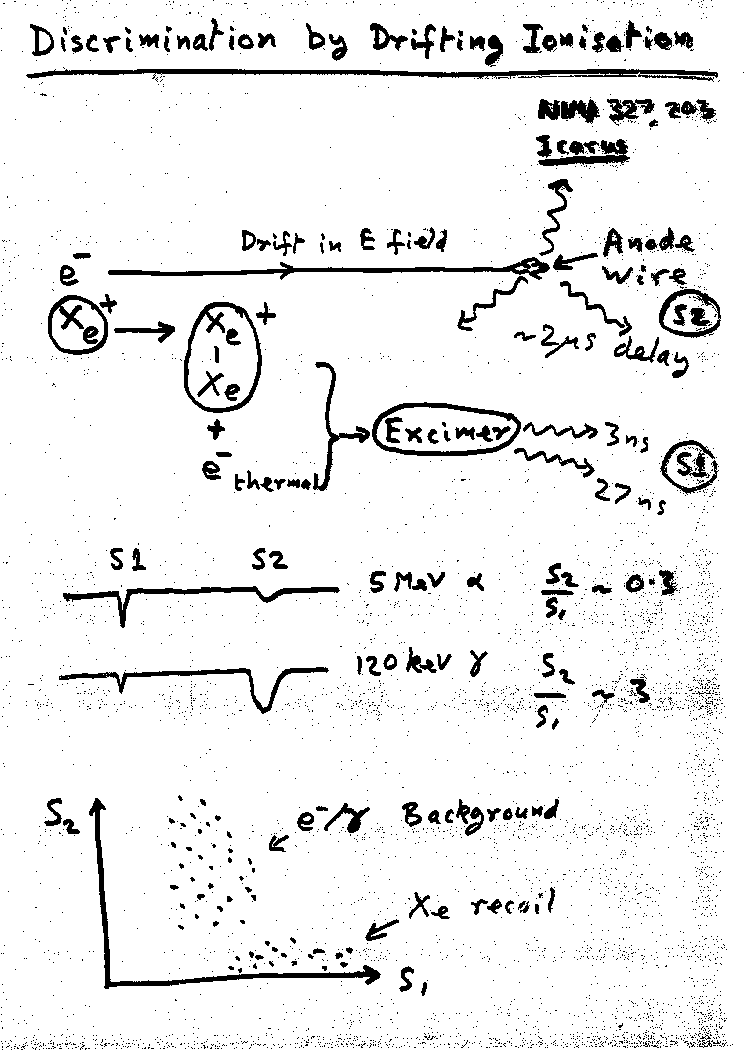 Discrimination by Drifting Ionisation
NIMA 327, 203
Icarus
Drift in E field
Anode
wire
e⁻
Xe⁺
Xe⁺
Xe
+
e⁻ thermal
S2
~2μs delay
Excimer
3ns
27 ns
S1
S1 S2
5 MeV α S2/S1 ~ 0.3
120 keV γ S2/S1 ~ 3
S2
e⁻/γ Background
Xe recoil
S1